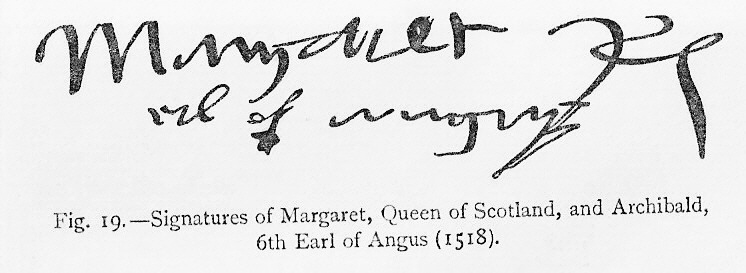 Margaret R
erl of angus
Fig. 19.—Signatures of Margaret, Queen of Scotland, and Archibald,
6th Earl of Angus (1518).